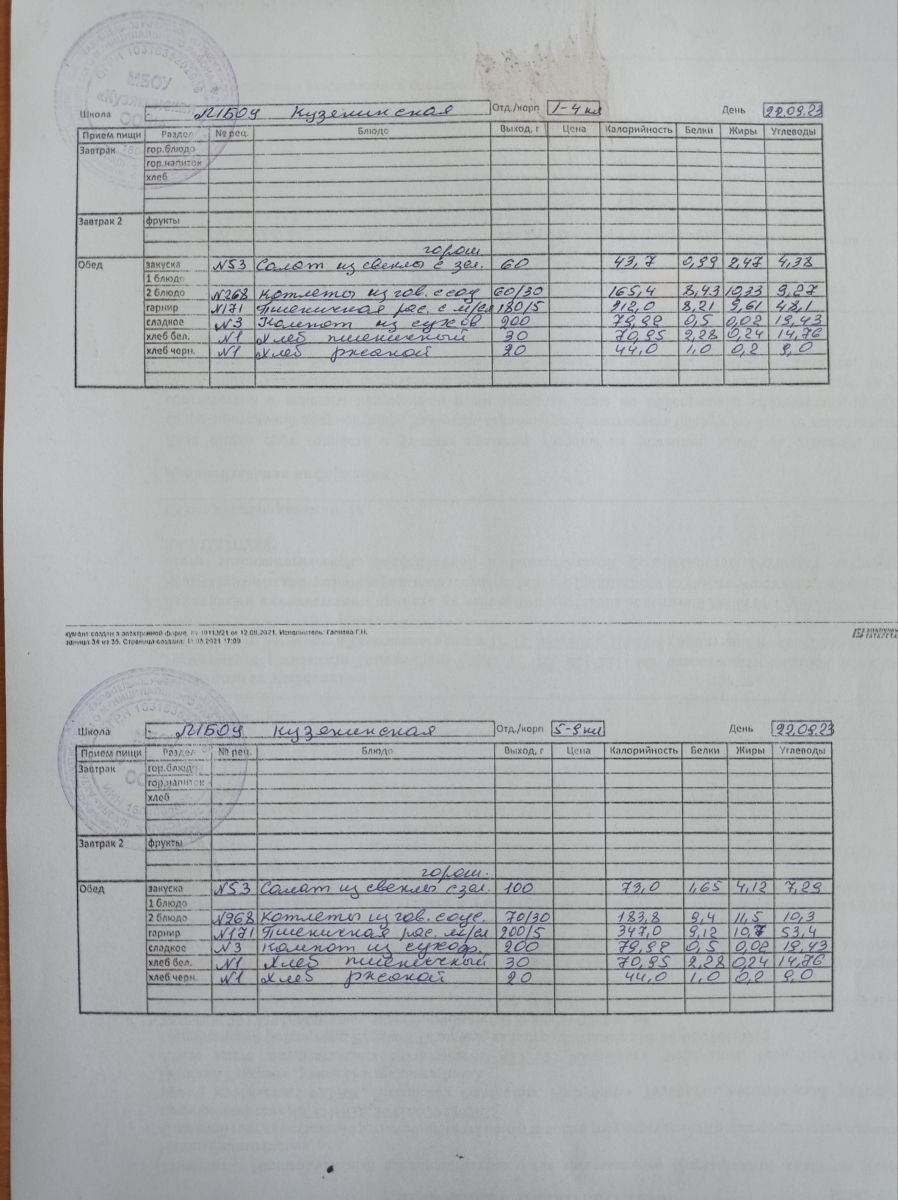 Школа МБОУ Кузякинская Отд./корп 1-4 кл День 22.09.23
Прием пищи Раздел № рец. Блюдо Выход, г Цена Калорийность Белки Жиры Углеводы
Завтрак гор.блюдо
гор.напиток
хлеб
Завтрак 2 фрукты
горош.
Обед закуска №53 Салат из свеклы с зел. 60 43,7 0,99 2,47 4,38
1 блюдо
2 блюдо №268 Котлеты из гов. с соу 60/30 165,4 8,43 10,33 9,27
гарнир №171 Пшеничная рас. с м/сл 180/5 312,0 8,21 9,61 48,1
сладкое №3 Компот из сухоф 200 79,98 0,5 0,02 19,43
хлеб бел. №1 Хлеб пшеничный 30 70,95 2,28 0,24 14,76
хлеб черн. №1 Хлеб ржаной 20 44,0 1,0 0,2 9,0
кумент создан в электронной форме. № 10113/21 от 12.09.2021. Исполнитель: Галиева Г.Н.
Школа МБОУ Кузякинская Отд./корп 5-9 кл День 22.09.23
Прием пищи Раздел № рец. Блюдо Выход, г Цена Калорийность Белки Жиры Углеводы
Завтрак гор.блюдо
гор.напиток
хлеб
Завтрак 2 фрукты
горош.
Обед закуска №53 Салат из свеклы с зел. 100 73,0 1,65 4,12 7,29
1 блюдо
2 блюдо №268 Котлеты из гов. соус. 70/30 183,8 9,4 11,5 10,3
гарнир №171 Пшеничная рас. м/сл 200/5 347,0 9,12 10,7 53,4
сладкое №3 Компот из сухоф. 200 79,98 0,5 0,02 19,43
хлеб бел. №1 Хлеб пшеничный 30 70,95 2,28 0,24 14,76
хлеб черн. №1 Хлеб ржаной 20 44,0 1,0 0,2 9,0